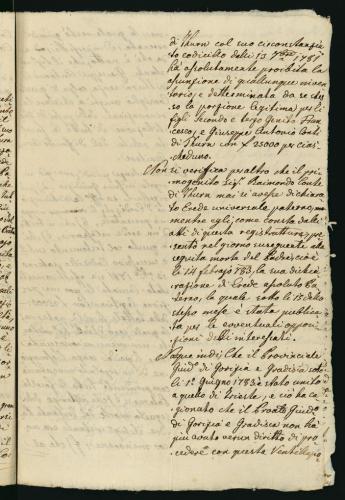 di Thurn col suo circonstanziato
codicillo delli 13 7bre 1781
ha assolutamente proibita la
assunzione di qualunque inven-
torio, e determinata da se stes-
so la porzione legitima per li
figli secondo e terzo genito Fran-
cesco, e Giuseppe Antonio Conti
di Thurn con f 25000 per cias-
cheduno.
Non si verifica peraltro che il pri-
mogenito Sigr Raimondo Conte
di Thurn mai si avesse dichiara-
to Erede universale paterno, men-
mentre egli, come consta dalli
atti di questa registratura, pre-
sentò nel giorno susseguente alla
seguita morte del Padre, cioè
li 14 febrajo 783, la sua dichia-
razione di Erede assoluto Pa-
terno, la quale sotto li 15 dello
stesso mese è stata publica-
ta per le eventuali opposi-
zioni delli interessati.
Nacque indi che il provinciale
Giud. di Gorizia e Gradisca sot-
to li 1o Giugno 1783 è stato unito
a quello di Trieste, e ciò ha ca-
gionato che il Giud.
di Gorizia e Gradisca non ha
più avuto verun diritto di pro-
cedere con questa Ventillazio